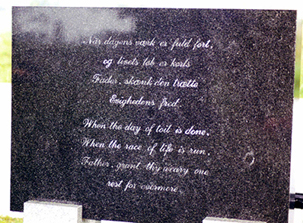 Når dagens værk er fuld ført,
og livets løb er kørt
Fader, skænk den trætte
Evighedens fred.
When the day of toil is done,
When the race of life is run,
Father, grant thy weary one
rest for evermore.